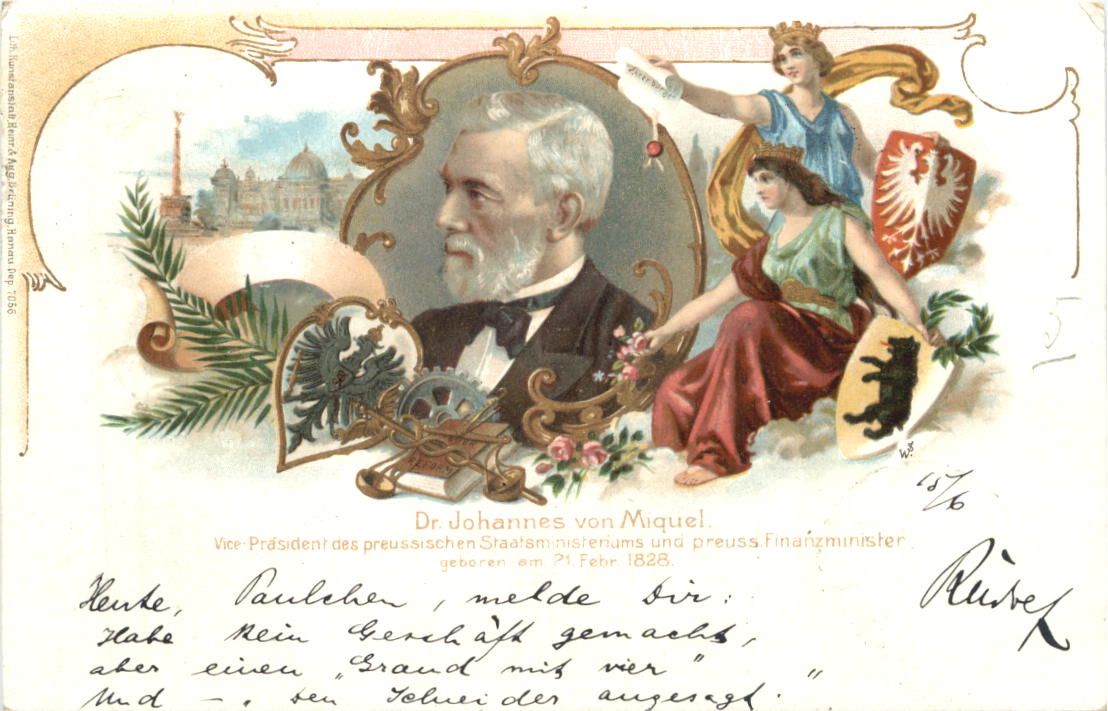 Lith. Kunstanstalt Heinr. & Aug. Brüning, Hanau Dep. 7056
Ehrenbürger
STEUER
REFORM
W.S.
15/6
Dr. Johannes von Miquel.
Vice-Präsident des preussischen Staatsministeriums und preuss. Finanzminister
geboren am 21. Febr. 1828.
Heute, Paulchen, melde Dir:
Habe kein Geschäft gemacht,
aber einen „Grand mit vier" "
Und —„ den Schneider angesagt.